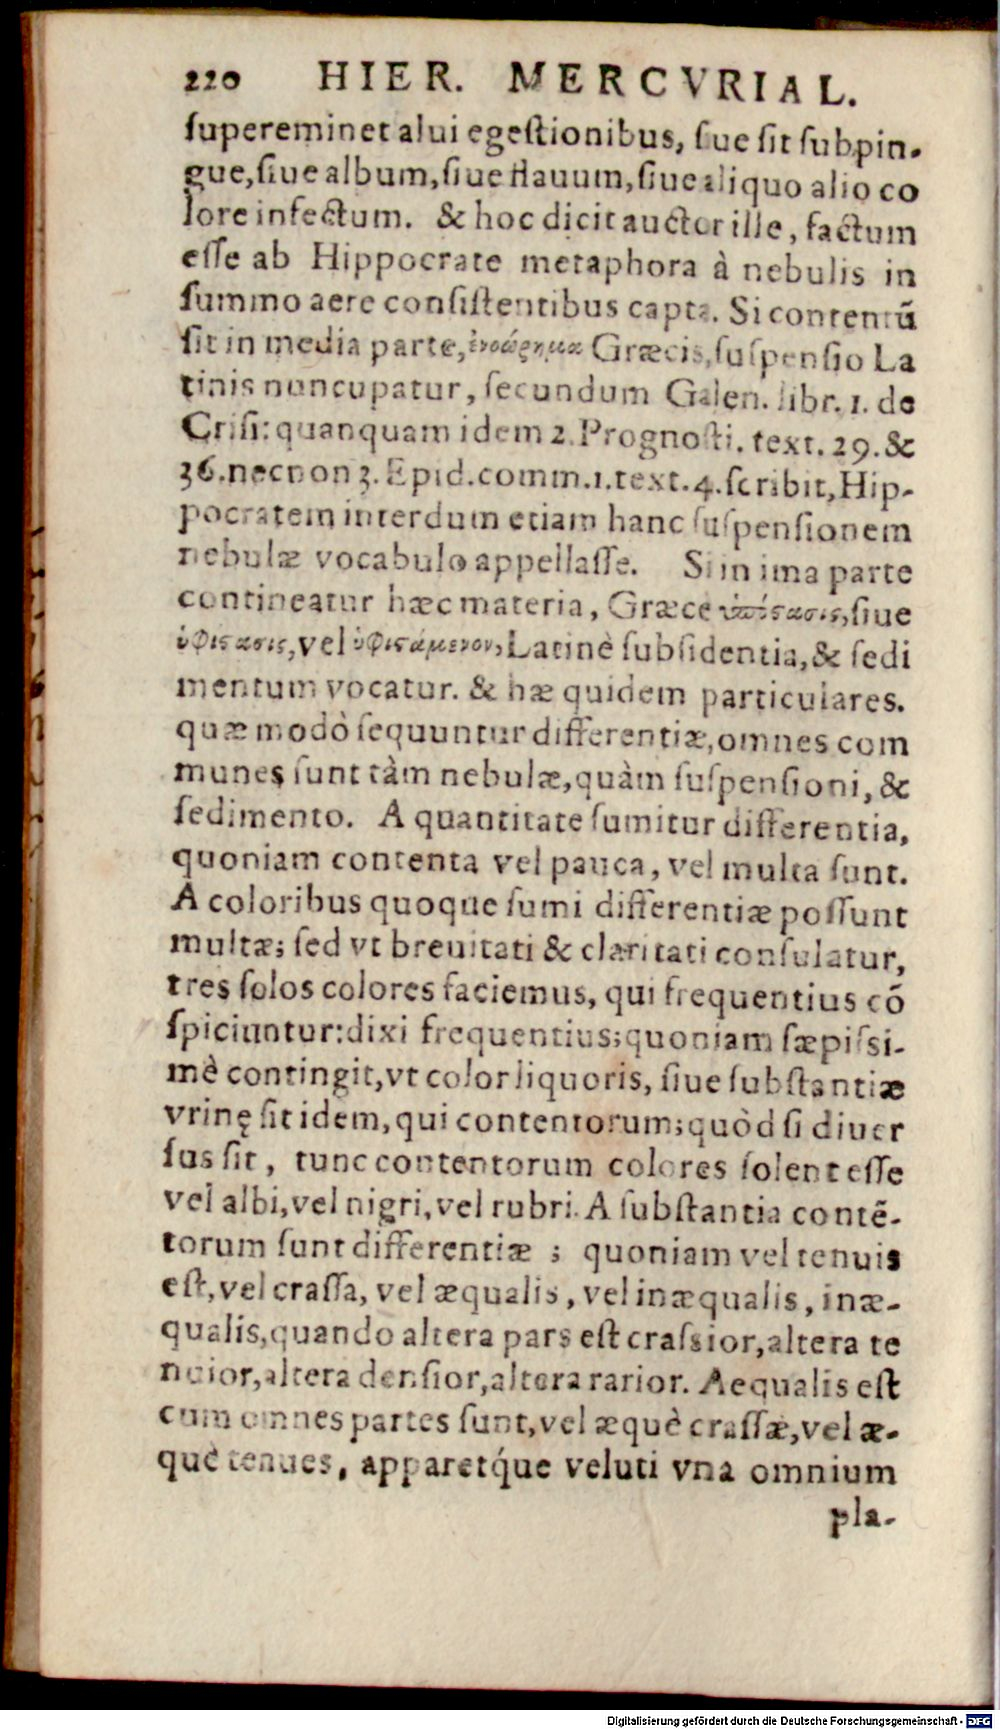 220 HIER. MERCVRIAL.
ſupereminet alui egeſtionibus, ſiue ſit ſubpin-
gue, ſiue album, ſiue flauum, ſiue aliquo alio co
lore infectum. & hoc dicit auctor ille, factum
eſſe ab Hippocrate metaphora à nebulis in
ſummo aere conſiſtentibus capta. Si contentū
ſit in media parte, ἐναιώρημα Græcis, ſuſpenſio La
tinis nuncupatur, ſecundum Galen. libr. 1. de
Criſi: quanquam idem 2. Prognoſti. text. 29. &
36. necnon 3. Epid. comm. 1. text. 4. ſcribit, Hip-
pocratem interdum etiam hanc ſuſpenſionem
nebulæ vocabulo appellaſſe. Si in ima parte
contineatur hæc materia, Græce ὑπόςασις, ſiue
ὑφιςασις, vel ὑφιςάμενον, Latinè ſubſidentia, & ſedi
mentum vocatur. & hæ quidem particulares.
quæ modò ſequuntur differentiæ, omnes com
munes ſunt tàm nebulæ, quàm ſuſpenſioni, &
ſedimento. A quantitate ſumitur differentia,
quoniam contenta vel pauca, vel multa ſunt.
A coloribus quoque ſumi differentiæ poſſunt
multæ; ſed vt breuitati & claritati conſulatur,
tres ſolos colores faciemus, qui frequentius cō
ſpiciuntur: dixi frequentius; quoniam ſæpiſsi-
mè contingit, vt color liquoris, ſiue ſubſtantiæ
vrinę ſit idem, qui contentorum; quòd ſi diuer
ſus ſit, tunc contentorum colores ſolent eſſe
vel albi, vel nigri, vel rubri. A ſubſtantia contē-
torum ſunt differentiæ ; quoniam vel tenuis
eſt, vel craſſa, vel æqualis, vel inæqualis, inæ-
qualis, quando altera pars eſt craſsior, altera te
nuior, altera denſior, altera rarior. Aequalis eſt
cum omnes partes ſunt, vel æquè craſſæ, vel æ-
què tenues, apparetq́ue veluti vna omnium
pla-
Digitalisierung gefördert durch die Deutsche Forschungsgemeinschaft - DFG